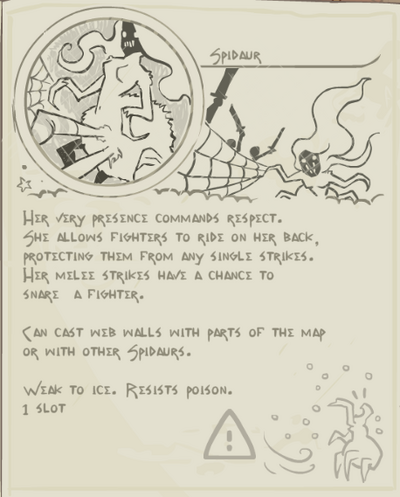 Spidaur
Her very presence commands respect.
She allows fighters to ride on her back,
protecting them from any single strikes.
Her melee strikes have a chance to
snare a fighter.
Can cast web walls with parts of the map
or with other Spidaurs.
Weak to ice. Resists poison.
1 slot
!